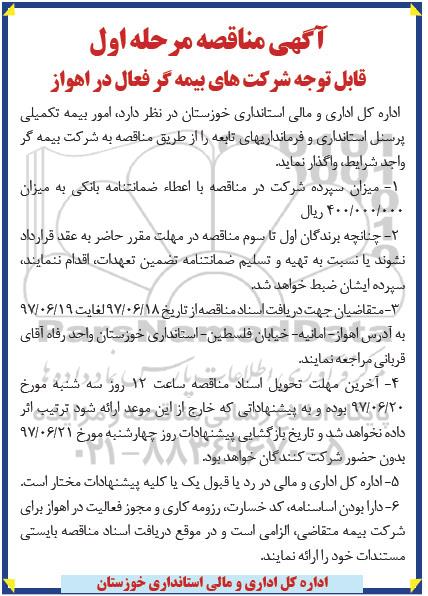 آگهی مناقصه مرحله اول
قابل توجه شرکت های بیمه گر فعال در اهواز
اداره کل اداری و مالی استانداری خوزستان در نظر دارد، امور بیمه تکمیلی
پرسنل استانداری و فرمانداریهای تابعه را از طریق مناقصه به شرکت بیمه گر
واجد شرایط، واگذار نماید.
۱- میزان سپرده شرکت در مناقصه با اعطاء ضمانتنامه بانکی به میزان
۴۰۰/۰۰۰/۰۰۰ ریال
۲- چنانچه برندگان اول تا سوم مناقصه در مهلت مقرر حاضر به عقد قرارداد
نشوند یا نسبت به تهیه و تسلیم ضمانتنامه تضمین تعهدات، اقدام ننمایند،
سپرده ایشان ضبط خواهد شد.
۳- متقاضیان جهت دریافت اسناد مناقصه از تاریخ ۹۷/۰۶/۱۸ لغایت ۹۷/۰۶/۱۹
به آدرس اهواز- امانیه- خیابان فلسطین- استانداری خوزستان واحد رفاه آقای
قربانی مراجعه نمایند.
۴- آخرین مهلت تحویل اسناد مناقصه ساعت ۱۲ روز سه شنبه مورخ
۹۷/۰۶/۲۰ بوده و به پیشنهاداتی که خارج از این موعد ارائه شود ترتیب اثر
داده نخواهد شد و تاریخ بازگشایی پیشنهادات روز چهارشنبه مورخ ۹۷/۰۶/۲۱
بدون حضور شرکت کنندگان خواهد بود.
۵- اداره کل اداری و مالی در رد یا قبول یک یا کلیه پیشنهادات مختار است.
۶- دارا بودن اساسنامه، کد خسارت، رزومه کاری و مجوز فعالیت در اهواز برای
شرکت بیمه متقاضی، الزامی است و در موقع دریافت اسناد مناقصه بایستی
مستندات خود را ارائه نمایند.
اداره کل اداری و مالی استانداری خوزستان